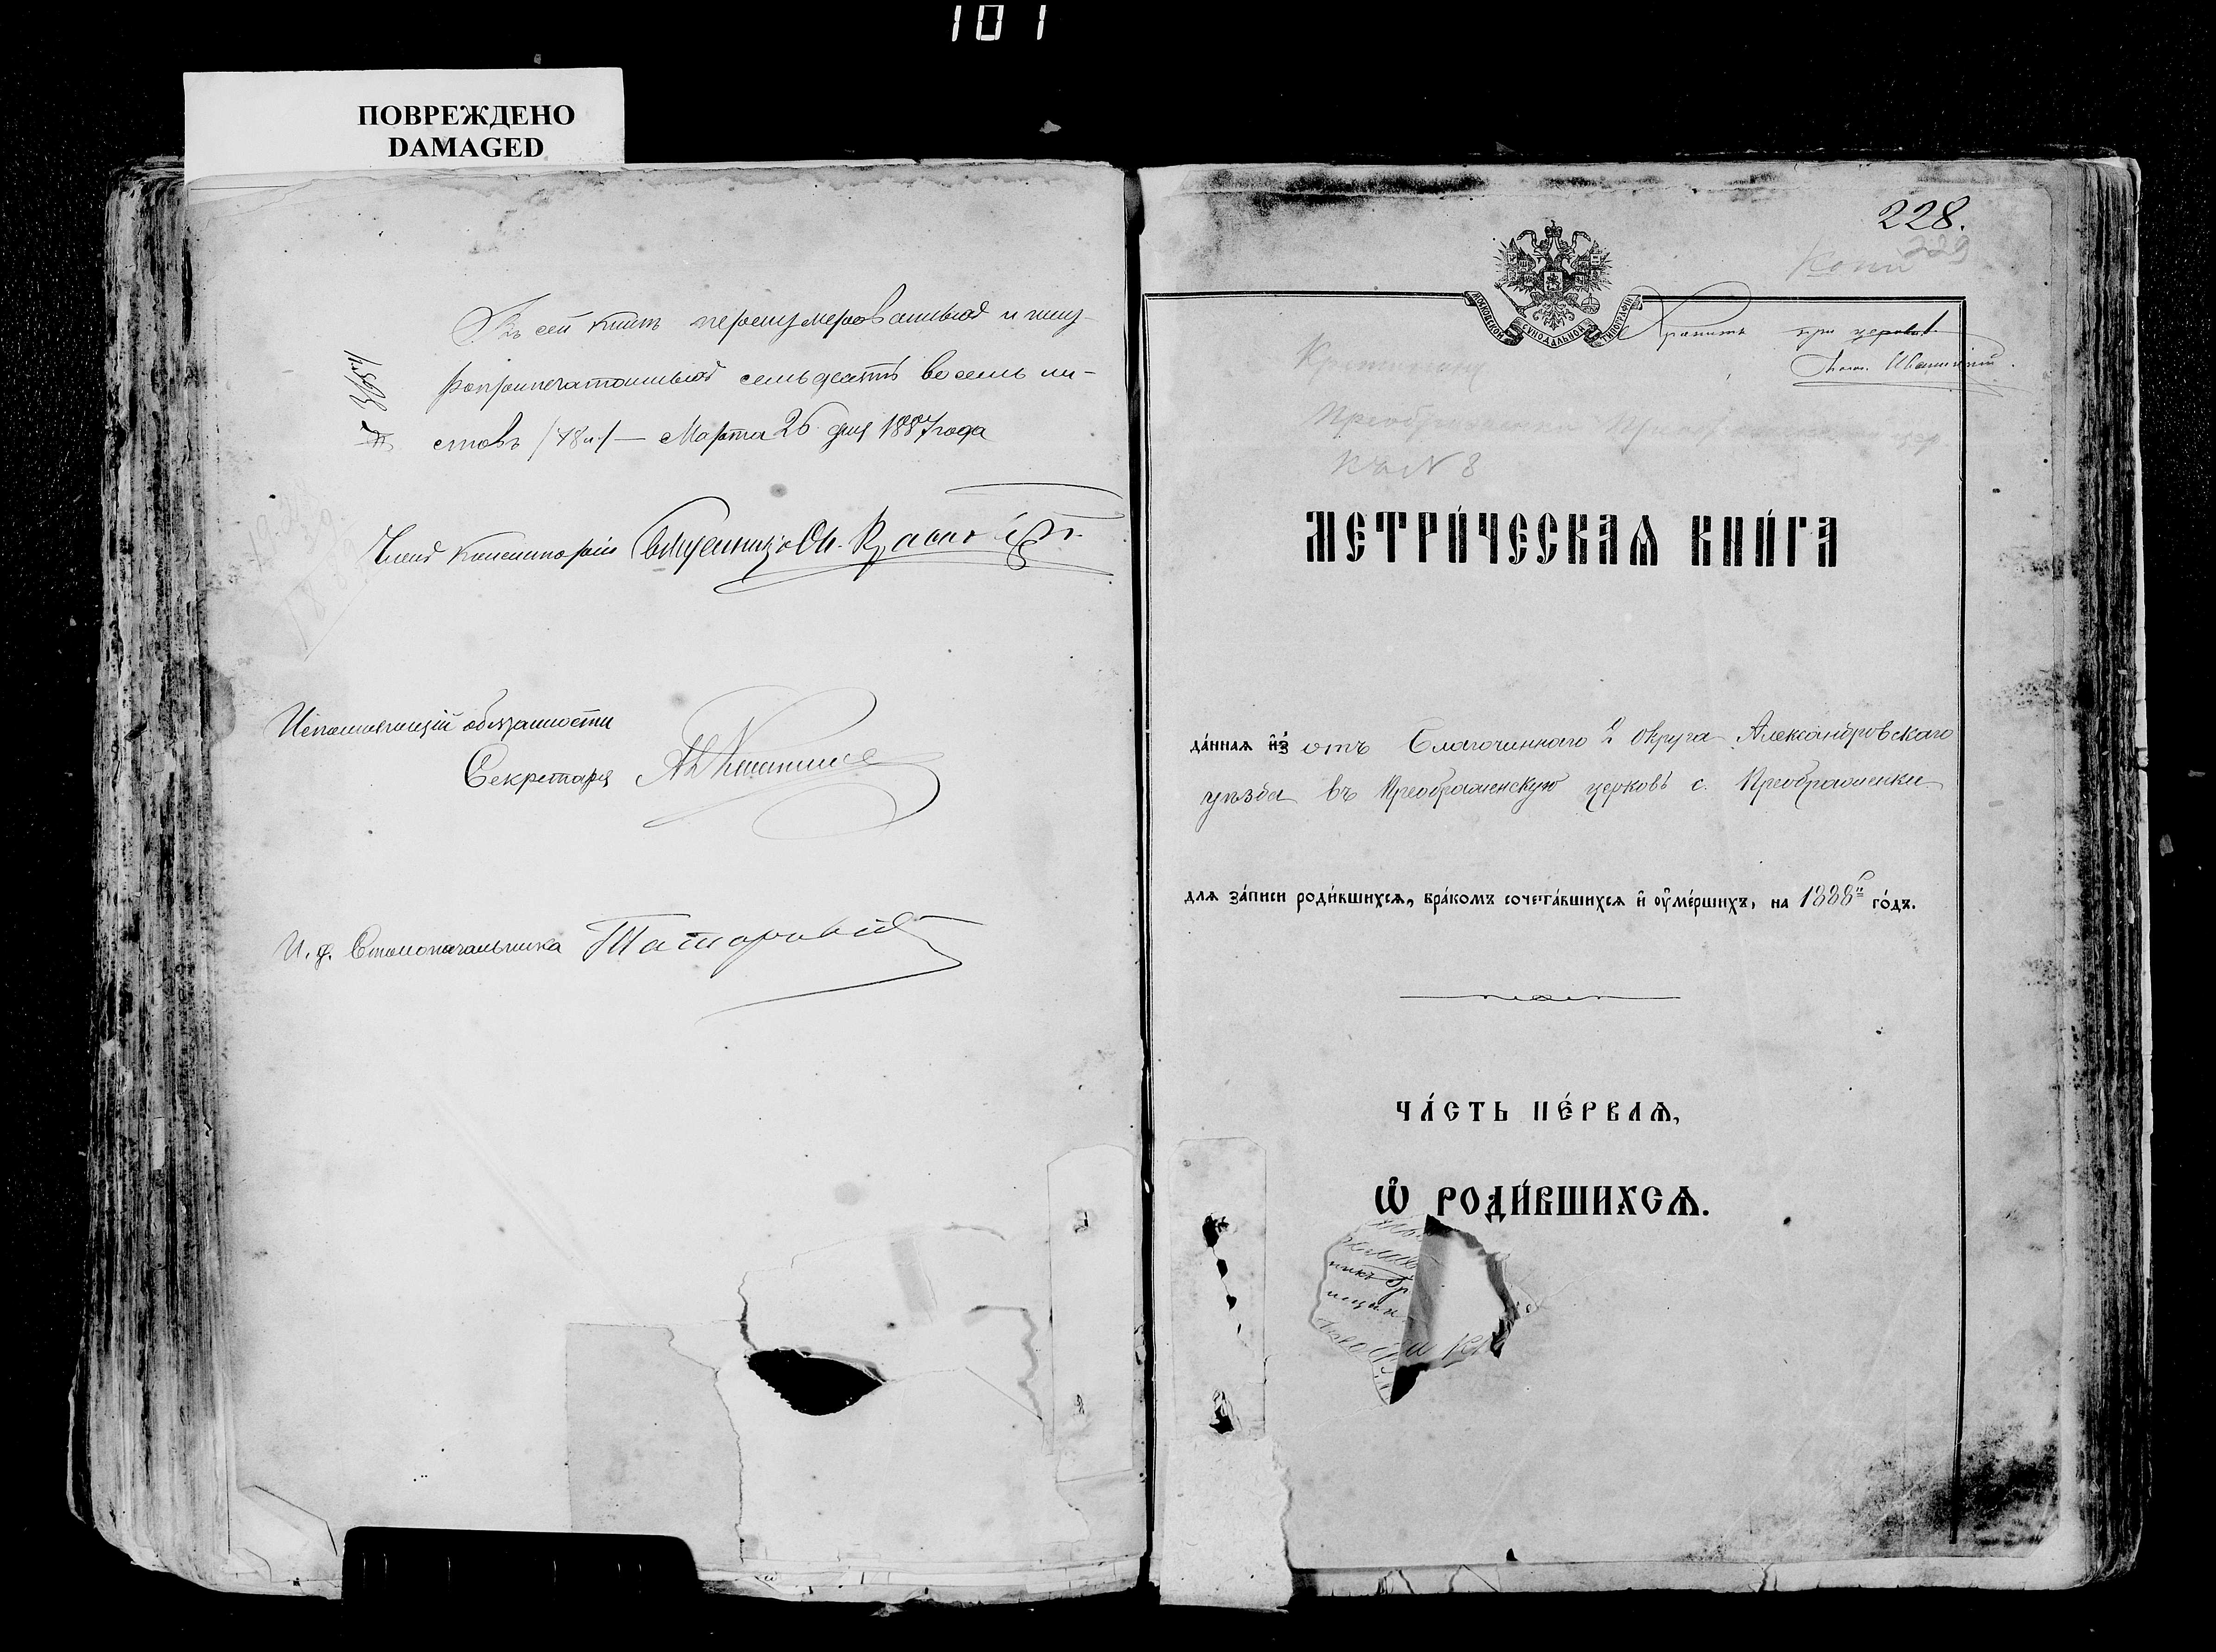 101
ПОВРЕЖДЕНО
DAMAGED
Въ сей книгѣ перенумерованныхъ и шну-
роприпечатанныхъ семьдесятъ восемь ли-
стовъ (78 л.) — Марта 26 дня 1887 года
Членъ Консисторіи Священникъ
Исполняющій обязанности
Секретаря
И. д. Столоначальника
228.
229
Копи
МОСКОВСКОЙ СУНОДАЛЬНОЙ ТИПОГРАФІИ
Хранить при церкви.
Преображенская
К № 8
МЕТРИ́ЧЕСКАѦ КНИ́ГА
да́нная и҆з̾ отъ Благочиннаго 2 округа Александровскаго
уѣзда въ Преображенскую церковь с. Преображенки
для за́писи роди́вшихся, бра́комъ сочета́вшихся и҆ ᲂу҆ме́ршихъ, на 1888й го́дъ.
ЧА́СТЬ ПЕ́РВАѦ,
Ѽ РОДИ́ВШИХСѦ.